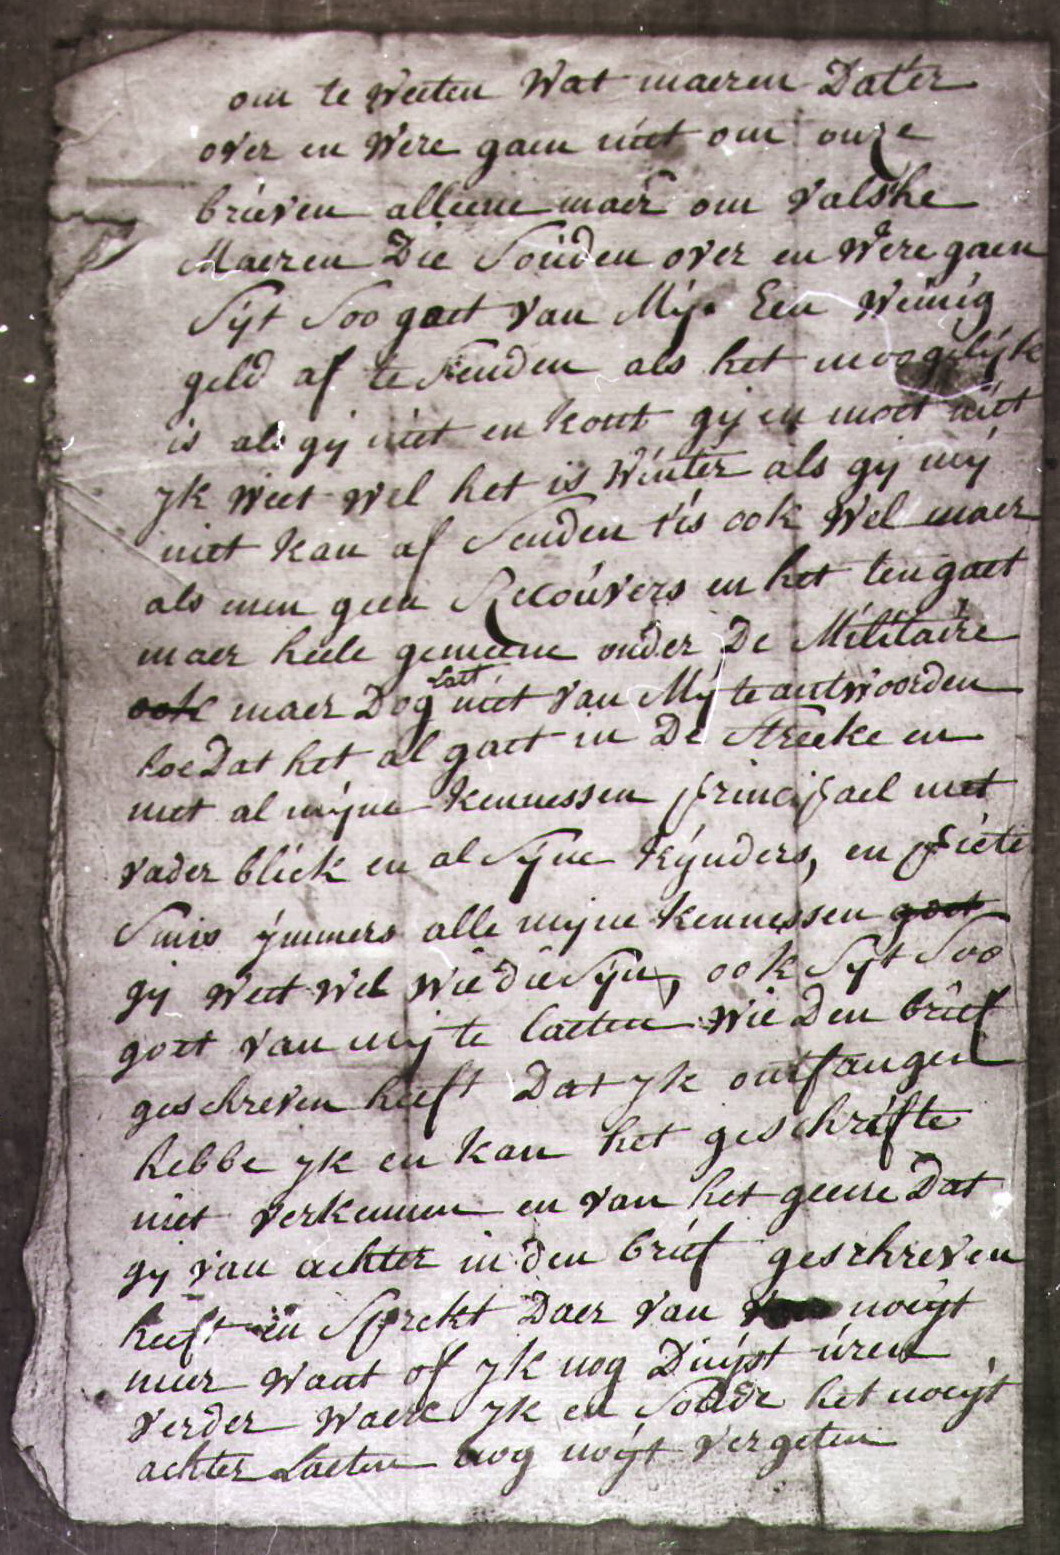 om te Weeten Wat maeren Dat'er
over en Were gaen niet om onze
brieven alleene maer om valshe
Maeren Die Souden over en Were gaen
Sijt Soo goet van Mij Een Weinig
geld af te Senden als het moogelijk
is als gij niet en kont gij en moet niet
yk Weet Wel het is Winter als gij mij
niet kan af Senden t'is ook Wel maer
als men geen Recouvers en het ten gaet
maer heele gemeene onder De Militaire
ook maer Dog Laet niet van Mij te antwoorden
hoe Dat het al gaet in De Streeke en
met al mijne kennessen principael met
vader bliek en al Sijne kijnders, en piete
Smis ijmmers alle mijne kennessen goet
gij Weet Wel Wie die Sijn, ook Sijt Soo
goet van mij te laeten Wie Den brief
geschreven heeft Dat yk ontfangen
hebbe yk en kan het geschrifte
niet verkennen en van het geene Dat
gij van achter in den brief geschreven
heeft en Sprekt Daer van noeijt
meer Want of yk nog Duijst uren
verder Waere yk en Soude het noeijt
achter Laeten nog noijt vergeten